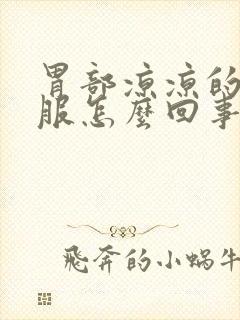 胃部凉凉的
服怎麼回事
飛奔的小蝸牛